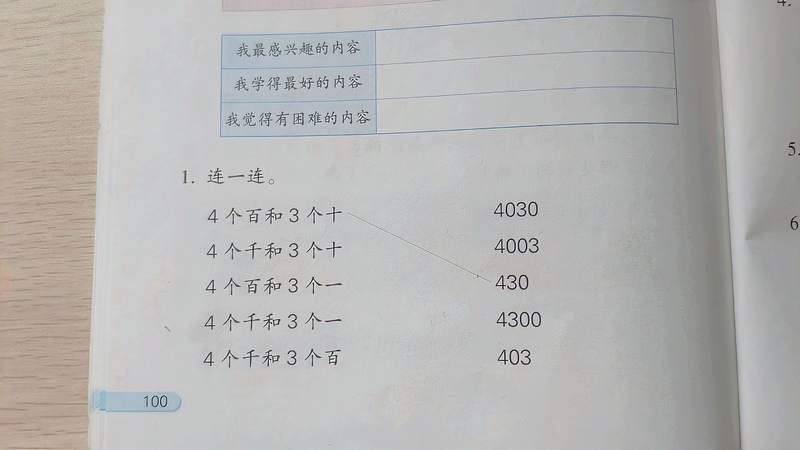 我最感兴趣的内容
我学得最好的内容
我觉得有困难的内容
1. 连一连。
4个百和3个十 4030
4个千和3个十 4003
4个百和3个一 430
4个千和3个一 4300
4个千和3个百 403
100
4.
5.
6